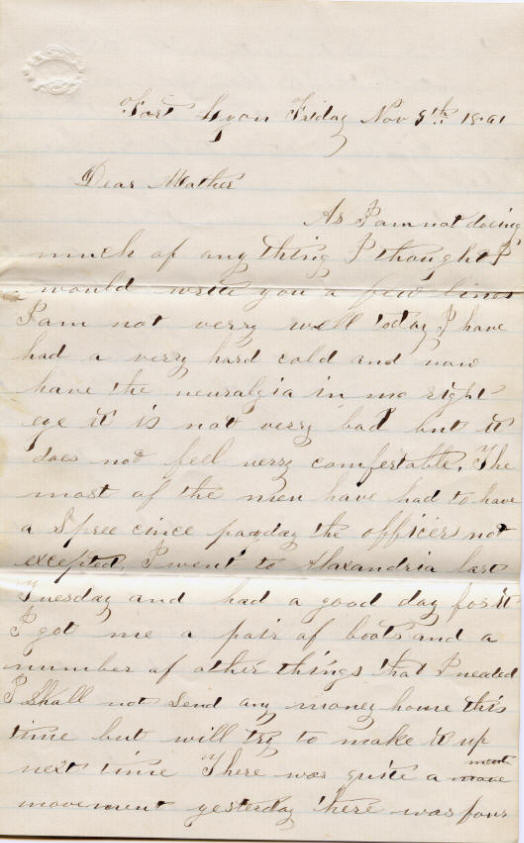 Fort Lyon Friday Nov 8th 1861
Dear Mother
As I am not doeing
much of any thing I thought I
would write you a few lines
I am not verry well today I have
had a very hard cold and now
have the neuralgia in me right
eye it is not verry bad but it
does not feel verry comfortable. The
most of the men have had to have
a Spree cince payday the officers not
excepted. I went to Alaxandria last
Tuesday and had a good day for it
I got me a pair of boots and a
number of other things that I needed
I Shall not send any money home this
time but will try to make it up
next time There was quite a
movement yesterday there was four